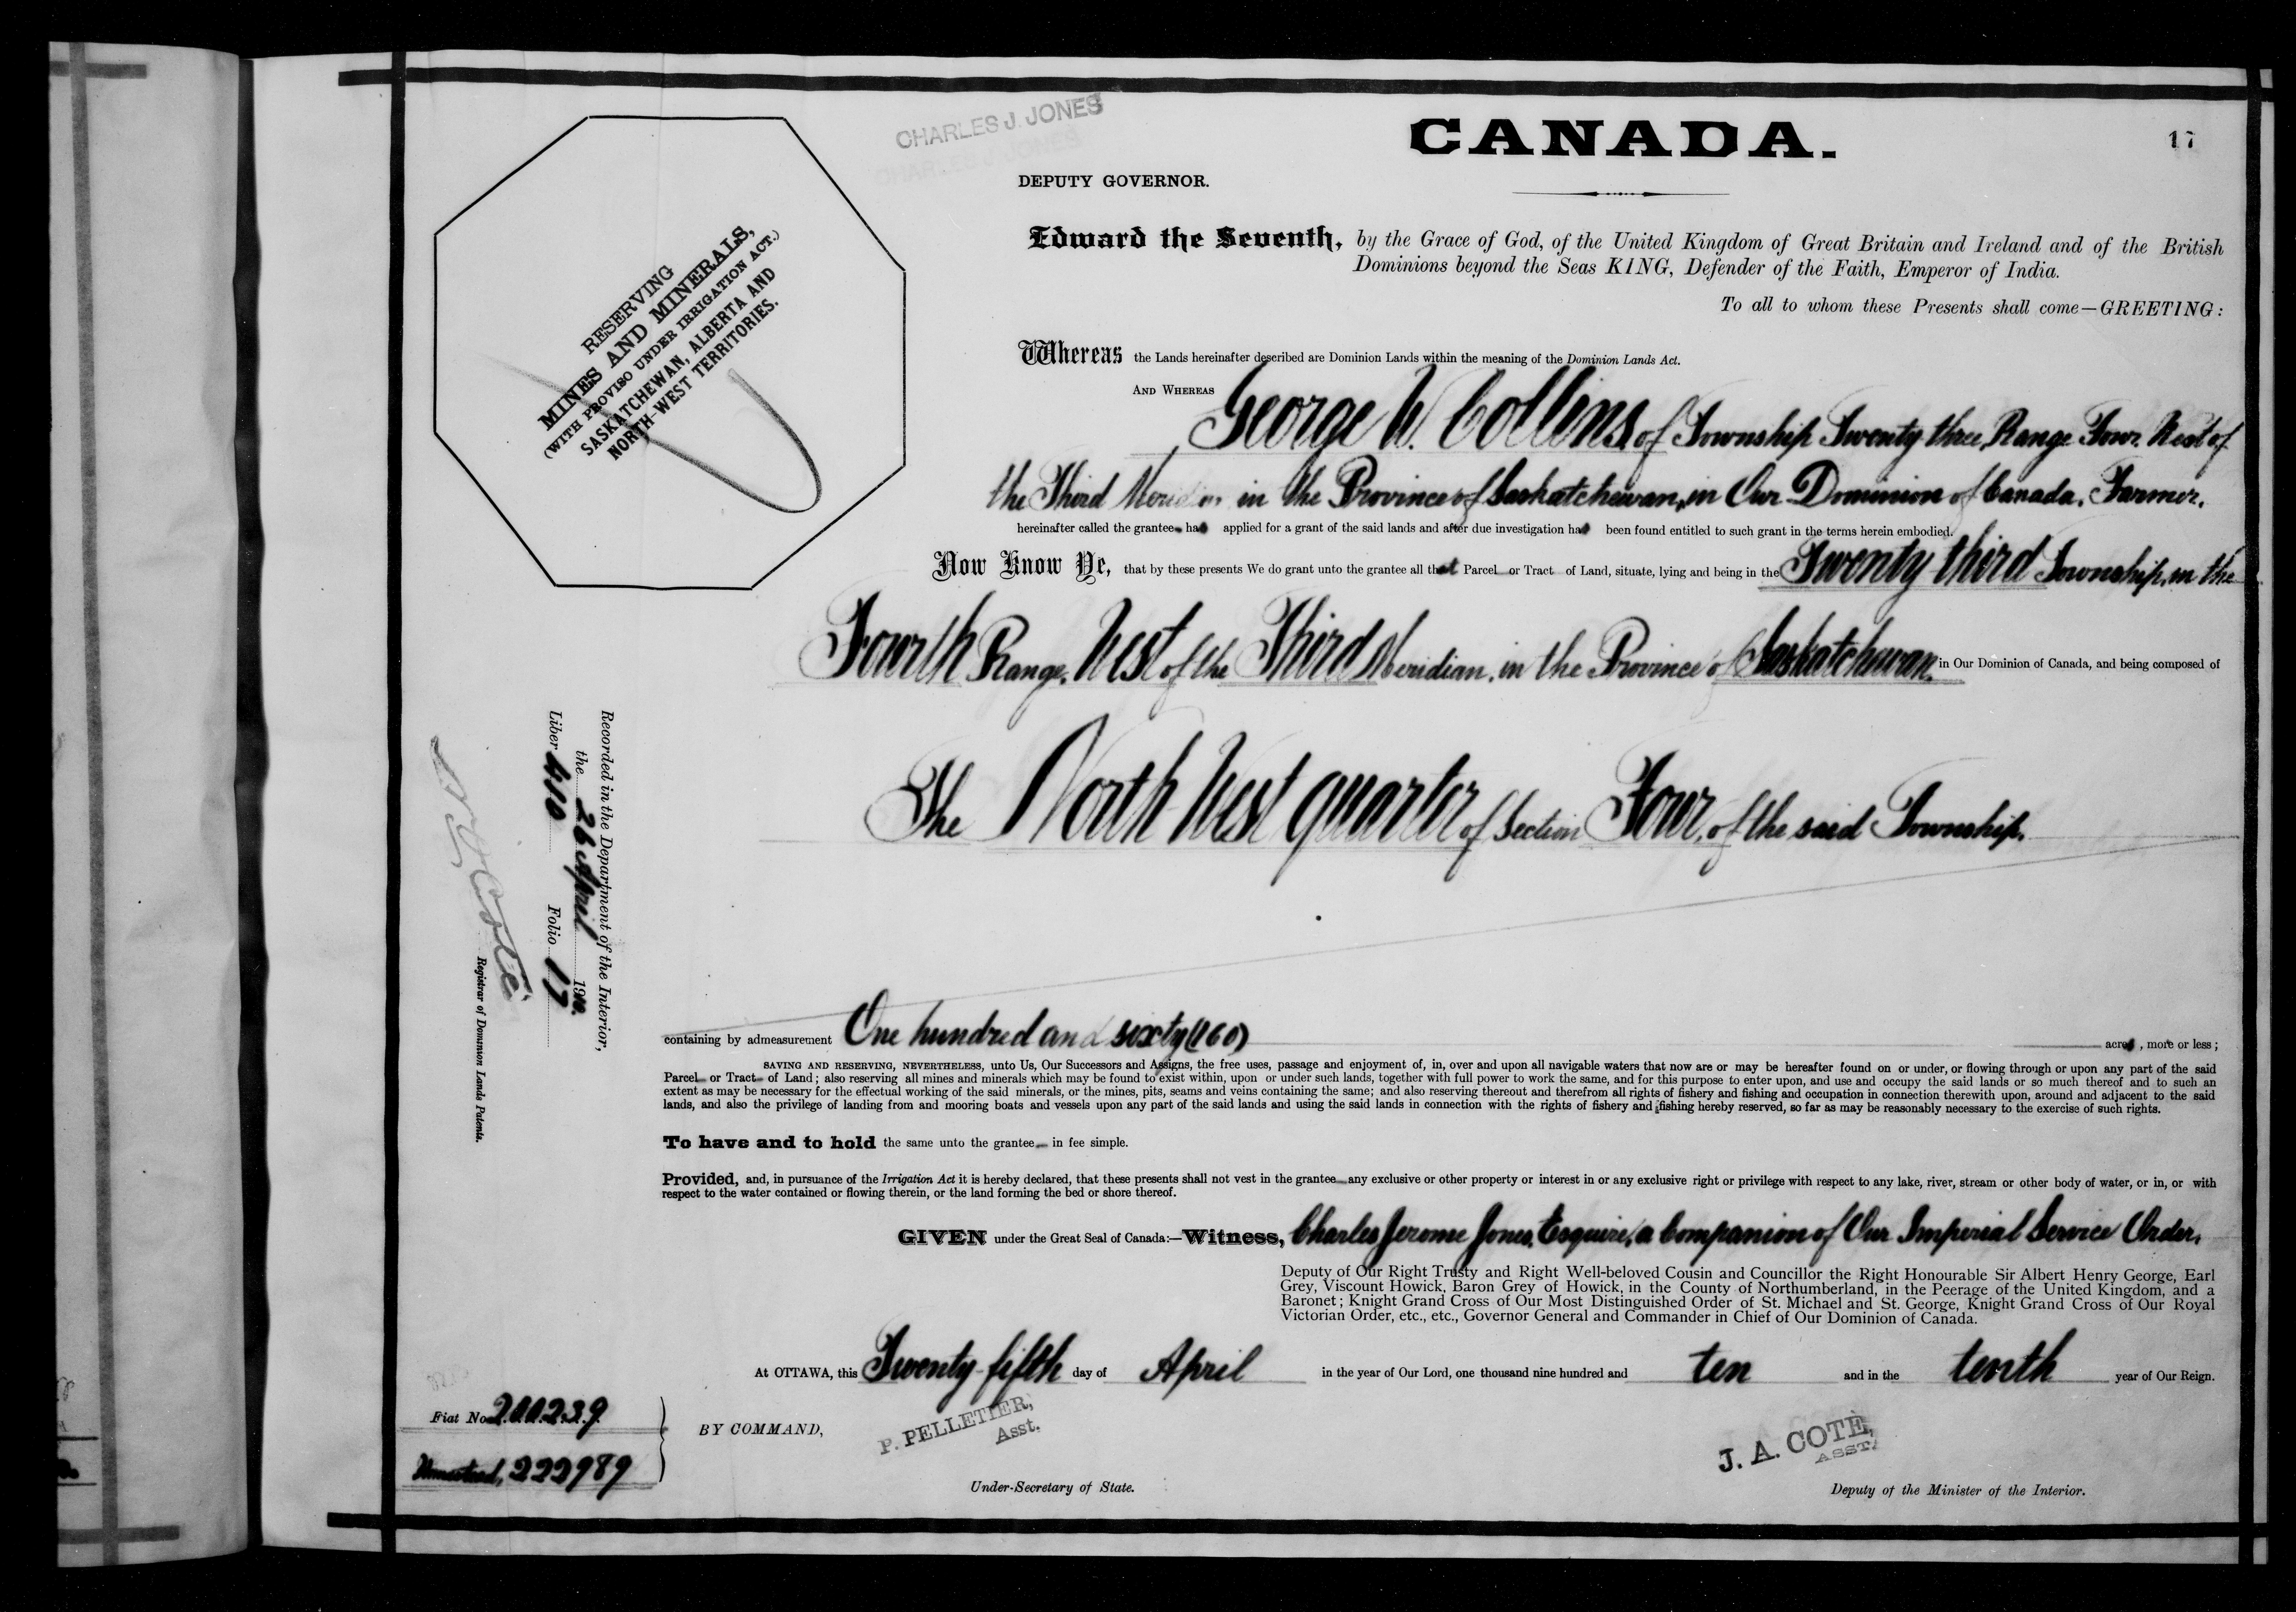 CHARLES J. JONES
CANADA.
17
DEPUTY GOVERNOR.
RESERVING
MINES AND MINERALS,
(WITH PROVISO UNDER IRRIGATION ACT.)
SASKATCHEWAN, ALBERTA AND
NORTH-WEST TERRITORIES.
Edward the Seventh, by the Grace of God, of the United Kingdom of Great Britain and Ireland and of the British
Dominions beyond the Seas KING, Defender of the Faith, Emperor of India.
To all to whom these Presents shall come—GREETING:
Whereas the Lands hereinafter described are Dominion Lands within the meaning of the Dominion Lands Act.
AND WHEREAS George W. Collins, of Township Twenty three, Range Four, West of
the Third Meridian in the Province of Saskatchewan, in Our Dominion of Canada, Farmer,
hereinafter called the grantee has applied for a grant of the said lands and after due investigation has been found entitled to such grant in the terms herein embodied.
Now Know Ye, that by these presents We do grant unto the grantee all that Parcel or Tract of Land, situate, lying and being in the Twenty third Township, in the
Fourth Range, West of the Third Meridian, in the Province of Saskatchewan, in Our Dominion of Canada, and being composed of
The North West quarter of Section Four, of the said Township.
Recorded in the Department of the Interior,
the 26 April 1910.
Liber 410 Folio 17
N. O. Coté
Registrar of Dominion Lands Patents.
containing by admeasurement One hundred and sixty (160) acres, more or less;
SAVING AND RESERVING, NEVERTHELESS, unto Us, Our Successors and Assigns, the free uses, passage and enjoyment of, in, over and upon all navigable waters that now are or may be hereafter found on or under, or flowing through or upon any part of the said
Parcel or Tract of Land; also reserving all mines and minerals which may be found to exist within, upon or under such lands, together with full power to work the same, and for this purpose to enter upon, and use and occupy the said lands or so much thereof and to such an
extent as may be necessary for the effectual working of the said minerals, or the mines, pits, seams and veins containing the same; and also reserving thereout and therefrom all rights of fishery and fishing and occupation in connection therewith upon, around and adjacent to the said
lands, and also the privilege of landing from and mooring boats and vessels upon any part of the said lands and using the said lands in connection with the rights of fishery and fishing hereby reserved, so far as may be reasonably necessary to the exercise of such rights.
To have and to hold the same unto the grantee in fee simple.
Provided, and, in pursuance of the Irrigation Act it is hereby declared, that these presents shall not vest in the grantee any exclusive or other property or interest in or any exclusive right or privilege with respect to any lake, river, stream or other body of water, or in, or with
respect to the water contained or flowing therein, or the land forming the bed or shore thereof.
GIVEN under the Great Seal of Canada:—Witness, Charles Jerome Jones, Esquire, a Companion of Our Imperial Service Order,
Deputy of Our Right Trusty and Right Well-beloved Cousin and Councillor the Right Honourable Sir Albert Henry George, Earl
Grey, Viscount Howick, Baron Grey of Howick, in the County of Northumberland, in the Peerage of the United Kingdom, and a
Baronet; Knight Grand Cross of Our Most Distinguished Order of St. Michael and St. George, Knight Grand Cross of Our Royal
Victorian Order, etc., etc., Governor General and Commander in Chief of Our Dominion of Canada.
At OTTAWA, this Twenty-fifth day of April in the year of Our Lord, one thousand nine hundred and ten and in the tenth year of Our Reign.
Fiat No 200239
Homestead, 222989
BY COMMAND,
P. PELLETIER,
Asst.
Under-Secretary of State.
J. A. COTÉ,
ASST.
Deputy of the Minister of the Interior.